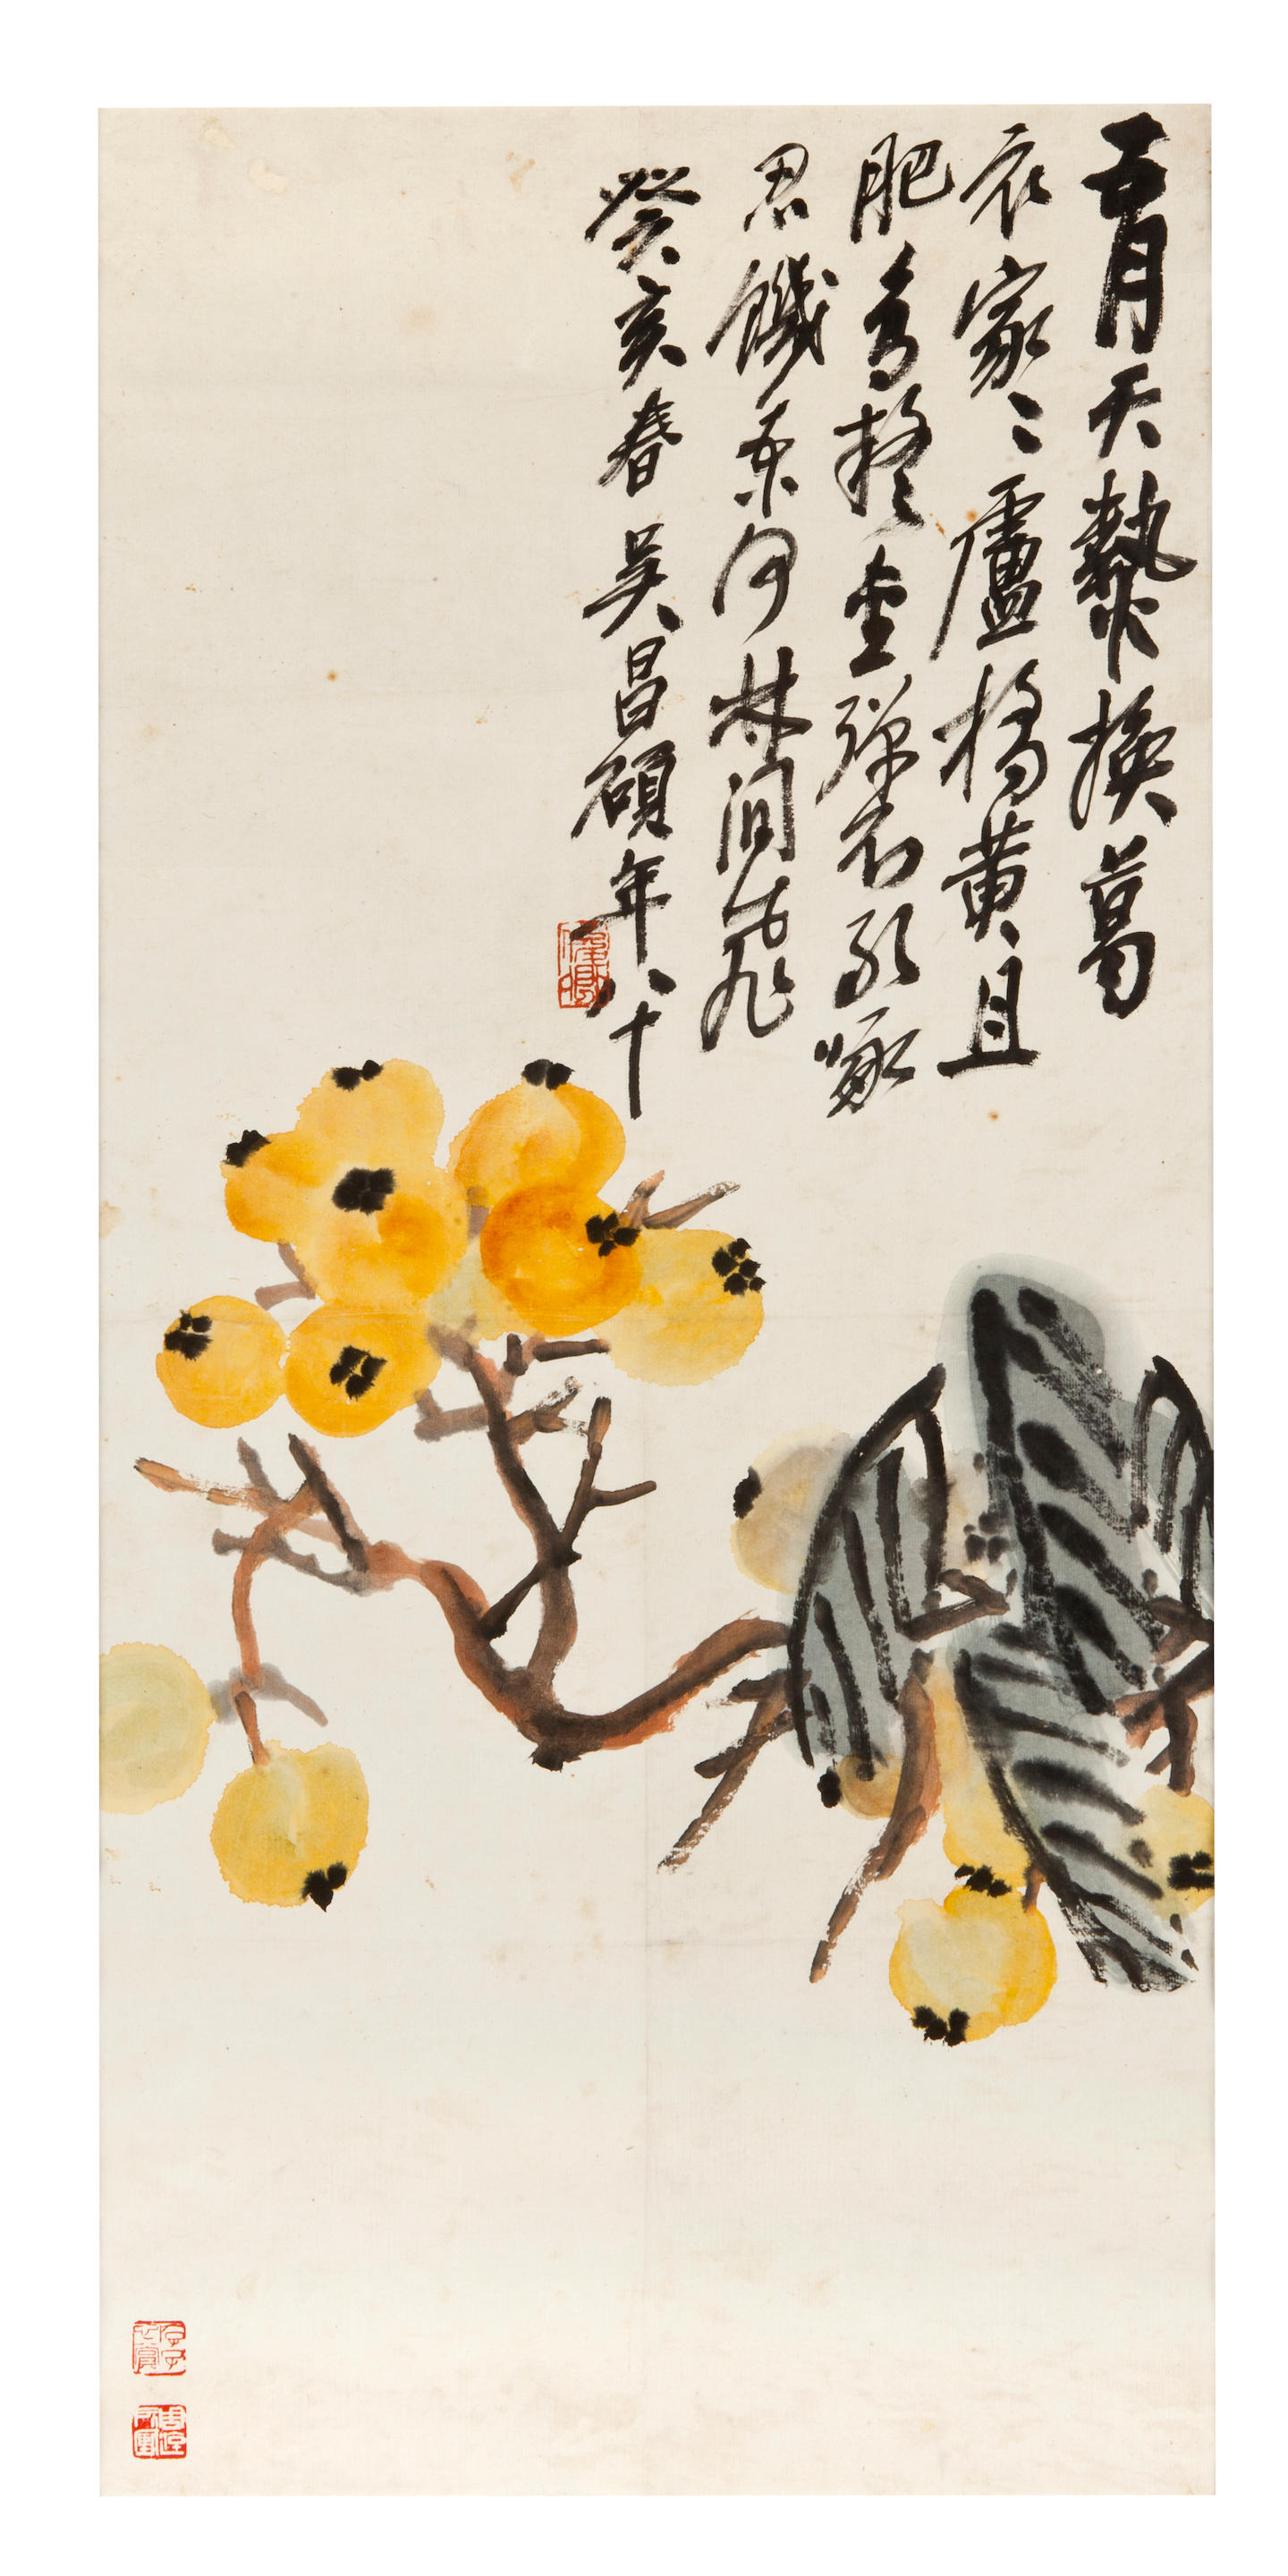 五月天熱換葛
衣家〻盧橘黃且
肥鳥疑金彈不敢啄
忍饑奈何林間飛
癸亥春吳昌碩年八十
俊卿